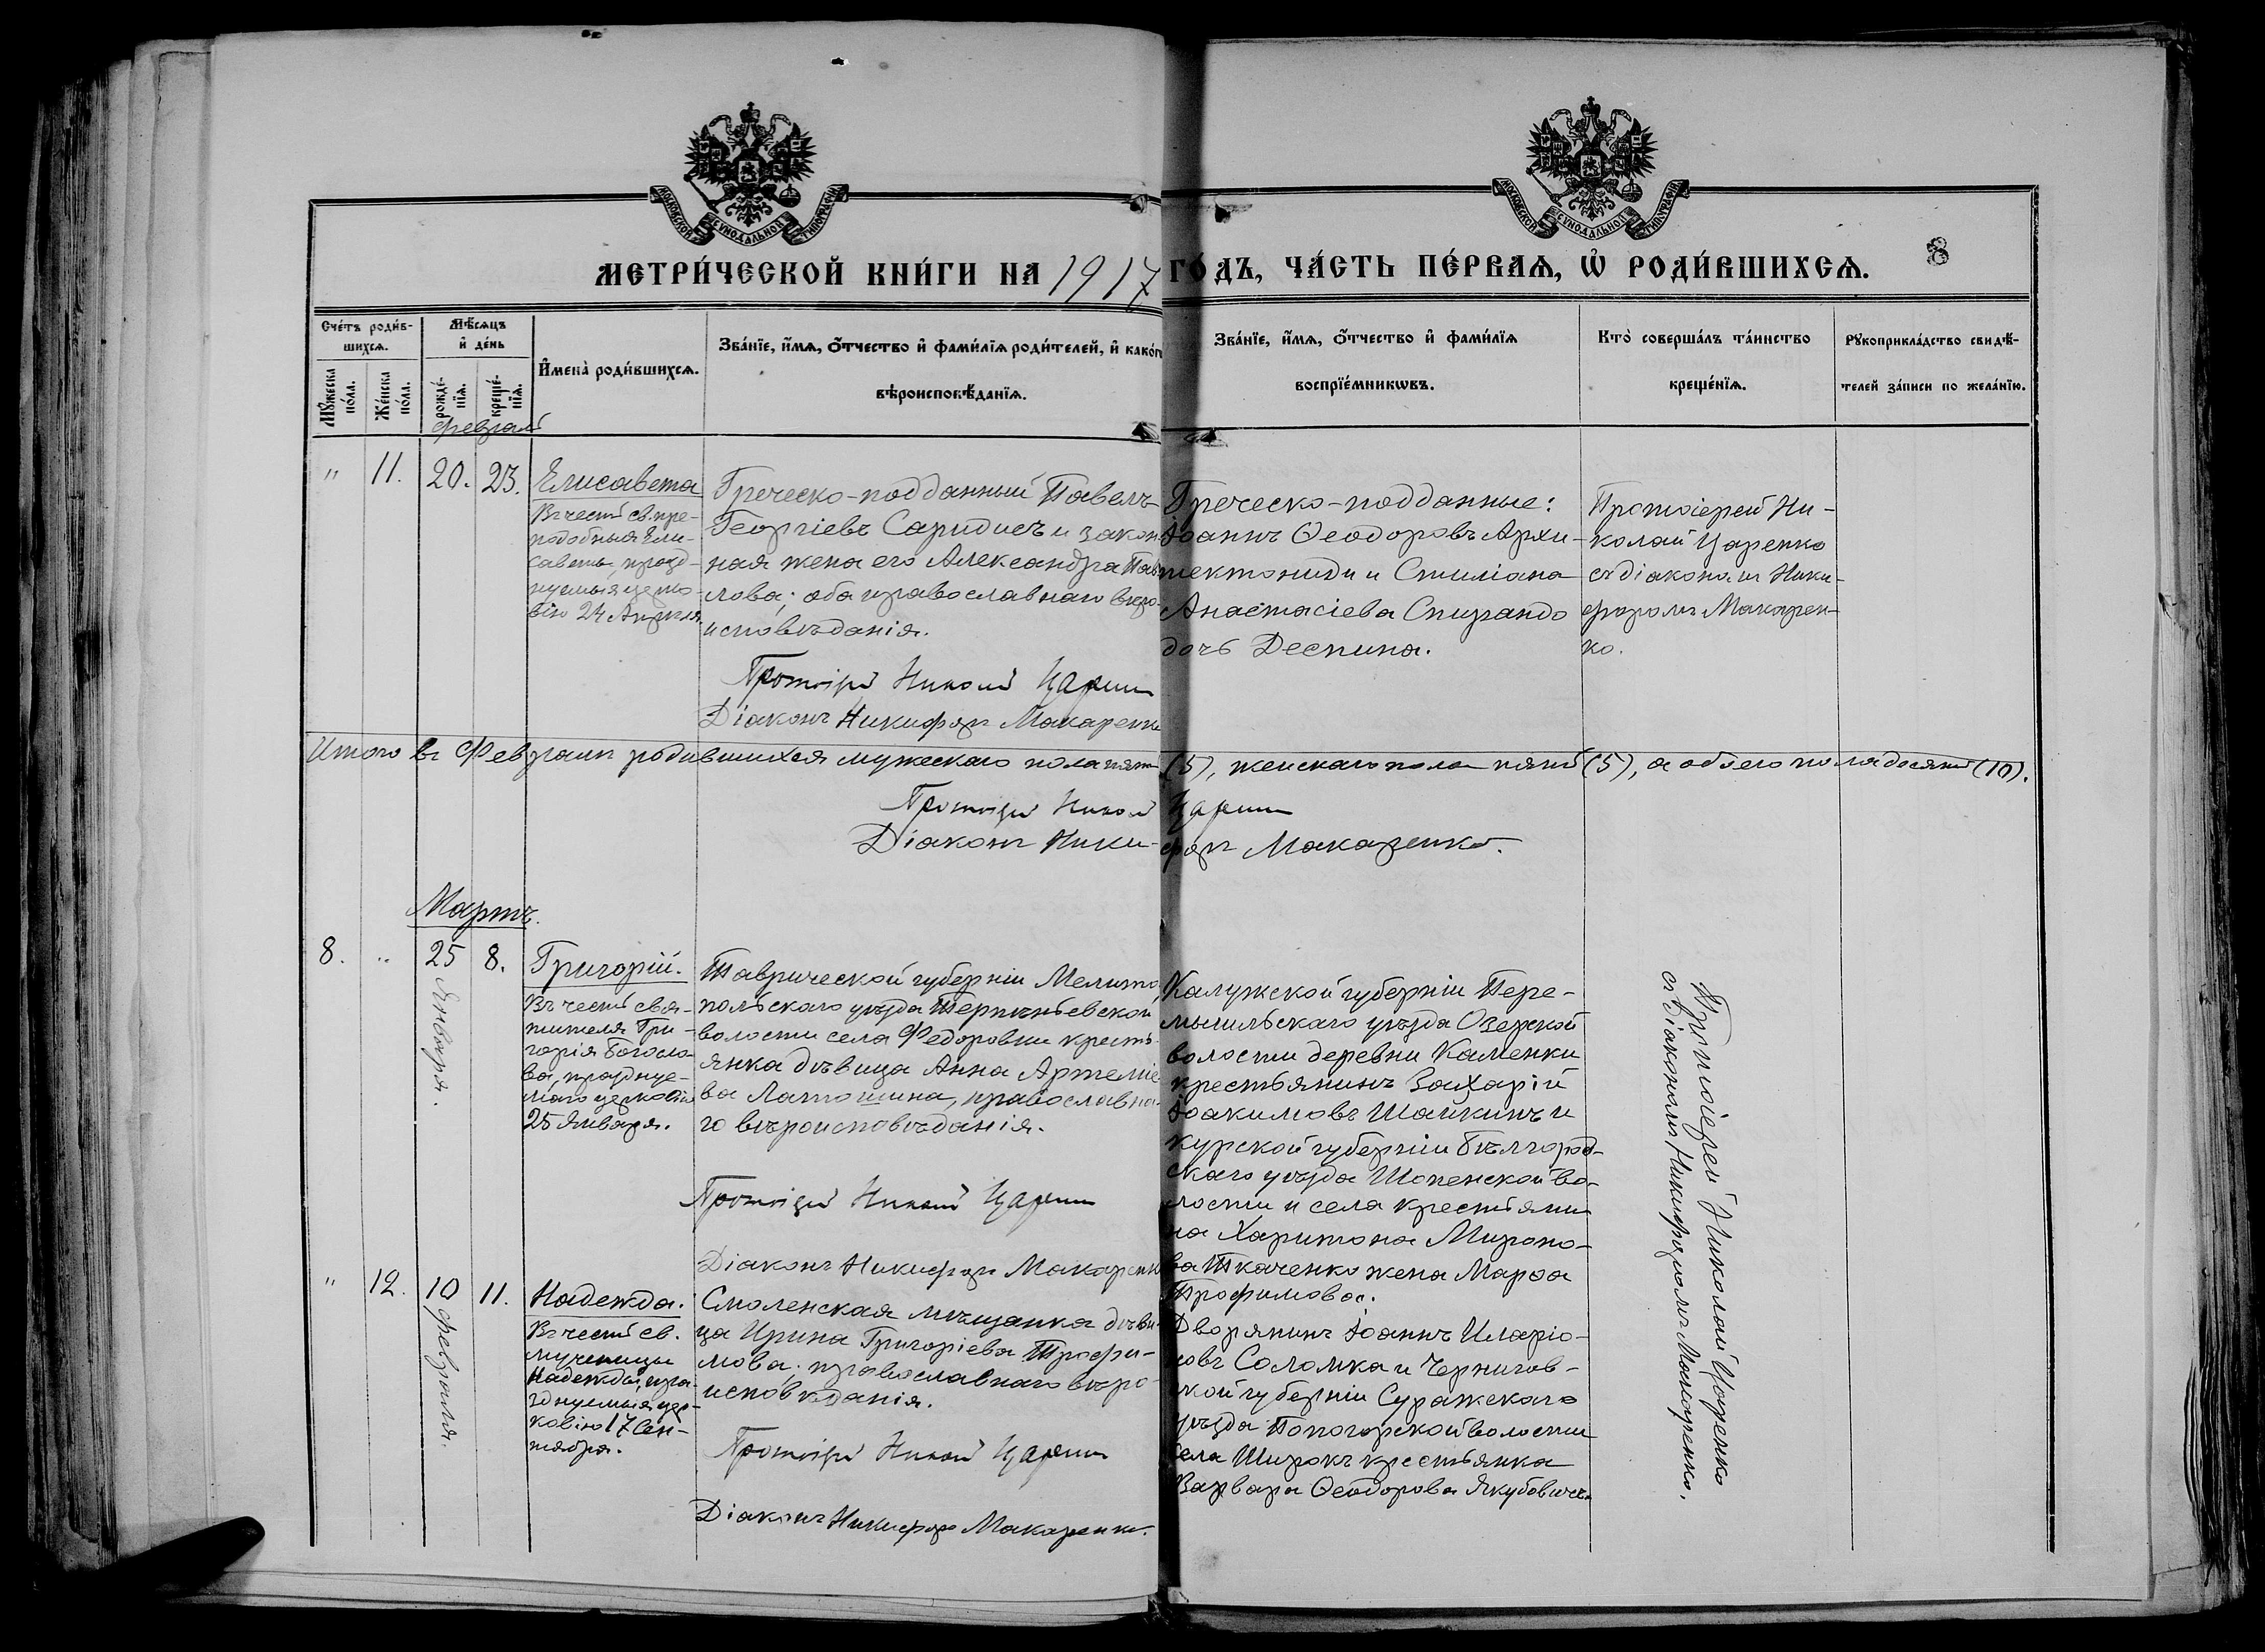 МОСКОВСКОЙ СѴНОДАЛЬНОЙ ТИПОГРАФІИ
МОСКОВСКОЙ СѴНОДАЛЬНОЙ ТИПОГРАФІИ
МЕТРИ́ЧЕСКОЙ КНИ́ГИ НА 1917 ГО́ДЪ, ЧА́СТЬ ПЕ́РВАѦ, Ѡ҆ РОДИ́ВШИХСѦ.
8
Сче́тъ роди́в-
шихсѧ.
Мѣ́сѧцъ
и҆ де́нь
Мꙋ́жеска
по́ла.
Же́нска
по́ла.
рожде́-
нїѧ.
креще́-
нїѧ.
И҆мена̀ роди́вшихсѧ.
Зва́нїе, и҆́мѧ, ѻ҆́тчество и҆ фами́лїѧ роди́телей, и҆ како́гѡ
вѣроисповѣ́данїѧ.
Зва́нїе, и҆́мѧ, ѻ҆́тчество и҆ фами́лїѧ
воспрїе́мникѡвъ.
Кто̀ соверша́лъ та́инство
креще́нїѧ.
Рꙋкоприкла́дство свидѣ́-
телей за́писи по жела́нїю.
Февраль
" 11. 20. 23.
Елисавета
Въ честь св. пре-
подобныя Ели-
саветы, празд-
нуемыя церко-
вію 24 Апреля.
Греческо-подданный Павелъ
Георгіевъ Саридисъ и закон-
ная жена его Александра Пав-
лова; оба православнаго вѣро-
исповѣданія.
Протоіерей Николай Царенко
Діаконъ Никифоръ Макаренко
Греческо-подданные:
Іоаннъ Ѳеодоровъ Архи-
тектониди и Стиліана
Анастасіева Спирандо
дочь Деспина.
Протоіерей Ни-
колай Царенко
съ діакономъ Ники-
форомъ Макарен-
ко.
Итого въ Февралѣ родившихся мужескаго пола пять (5), женскаго пола пять (5), а обоего пола десять (10).
Протоіерей Николай Царенко
Діаконъ Никифоръ Макаренко.
Мартъ.
8. " 25 8.
Января.
Григорій.
Въ честь свя-
тителя Гри-
горія Богосло-
ва, празднуе-
маго церковію
25 Января.
Таврической губерніи Мелито-
польскаго уѣзда Терпѣньевской
волости села Федоровки кресть-
янка дѣвица Анна Артеміе-
ва Латошина, православна-
го вѣроисповѣданія.
Протоіерей Николай Царенко
Діаконъ Никифоръ Макаренко
Калужской губерніи Пере-
мышльскаго уѣзда Озерской
волости деревни Каменки
крестьянинъ Захарій
Іоакимовъ Шайкинъ и
Курской губерніи Бѣлгород-
скаго уѣзда Шопенской во-
лости и села крестьяни-
на Харитона Мироно-
ва Ткаченко жена Марѳа
Трофимова.
Протоіерей Николай Царенко
съ Діакономъ Никифоромъ Макаренко.
" 12. 10 11.
Февраля.
Надежда.
Въ честь св.
мученицы
Надежды, пра-
зднуемыя цер-
ковію 17 Сен-
тября.
Смоленская мѣщанка дѣви-
ца Ирина Григоріева Трофи-
мова; православнаго вѣро-
исповѣданія.
Протоіерей Николай Царенко
Діаконъ Никифоръ Макаренко.
Дворянинъ Іоаннъ Иларіо-
новъ Соломка и Чернигов-
ской губерніи Суражскаго
уѣзда Попогорской волости
села Широкъ крестьянка
Варвара Ѳеодорова Якубовичъ